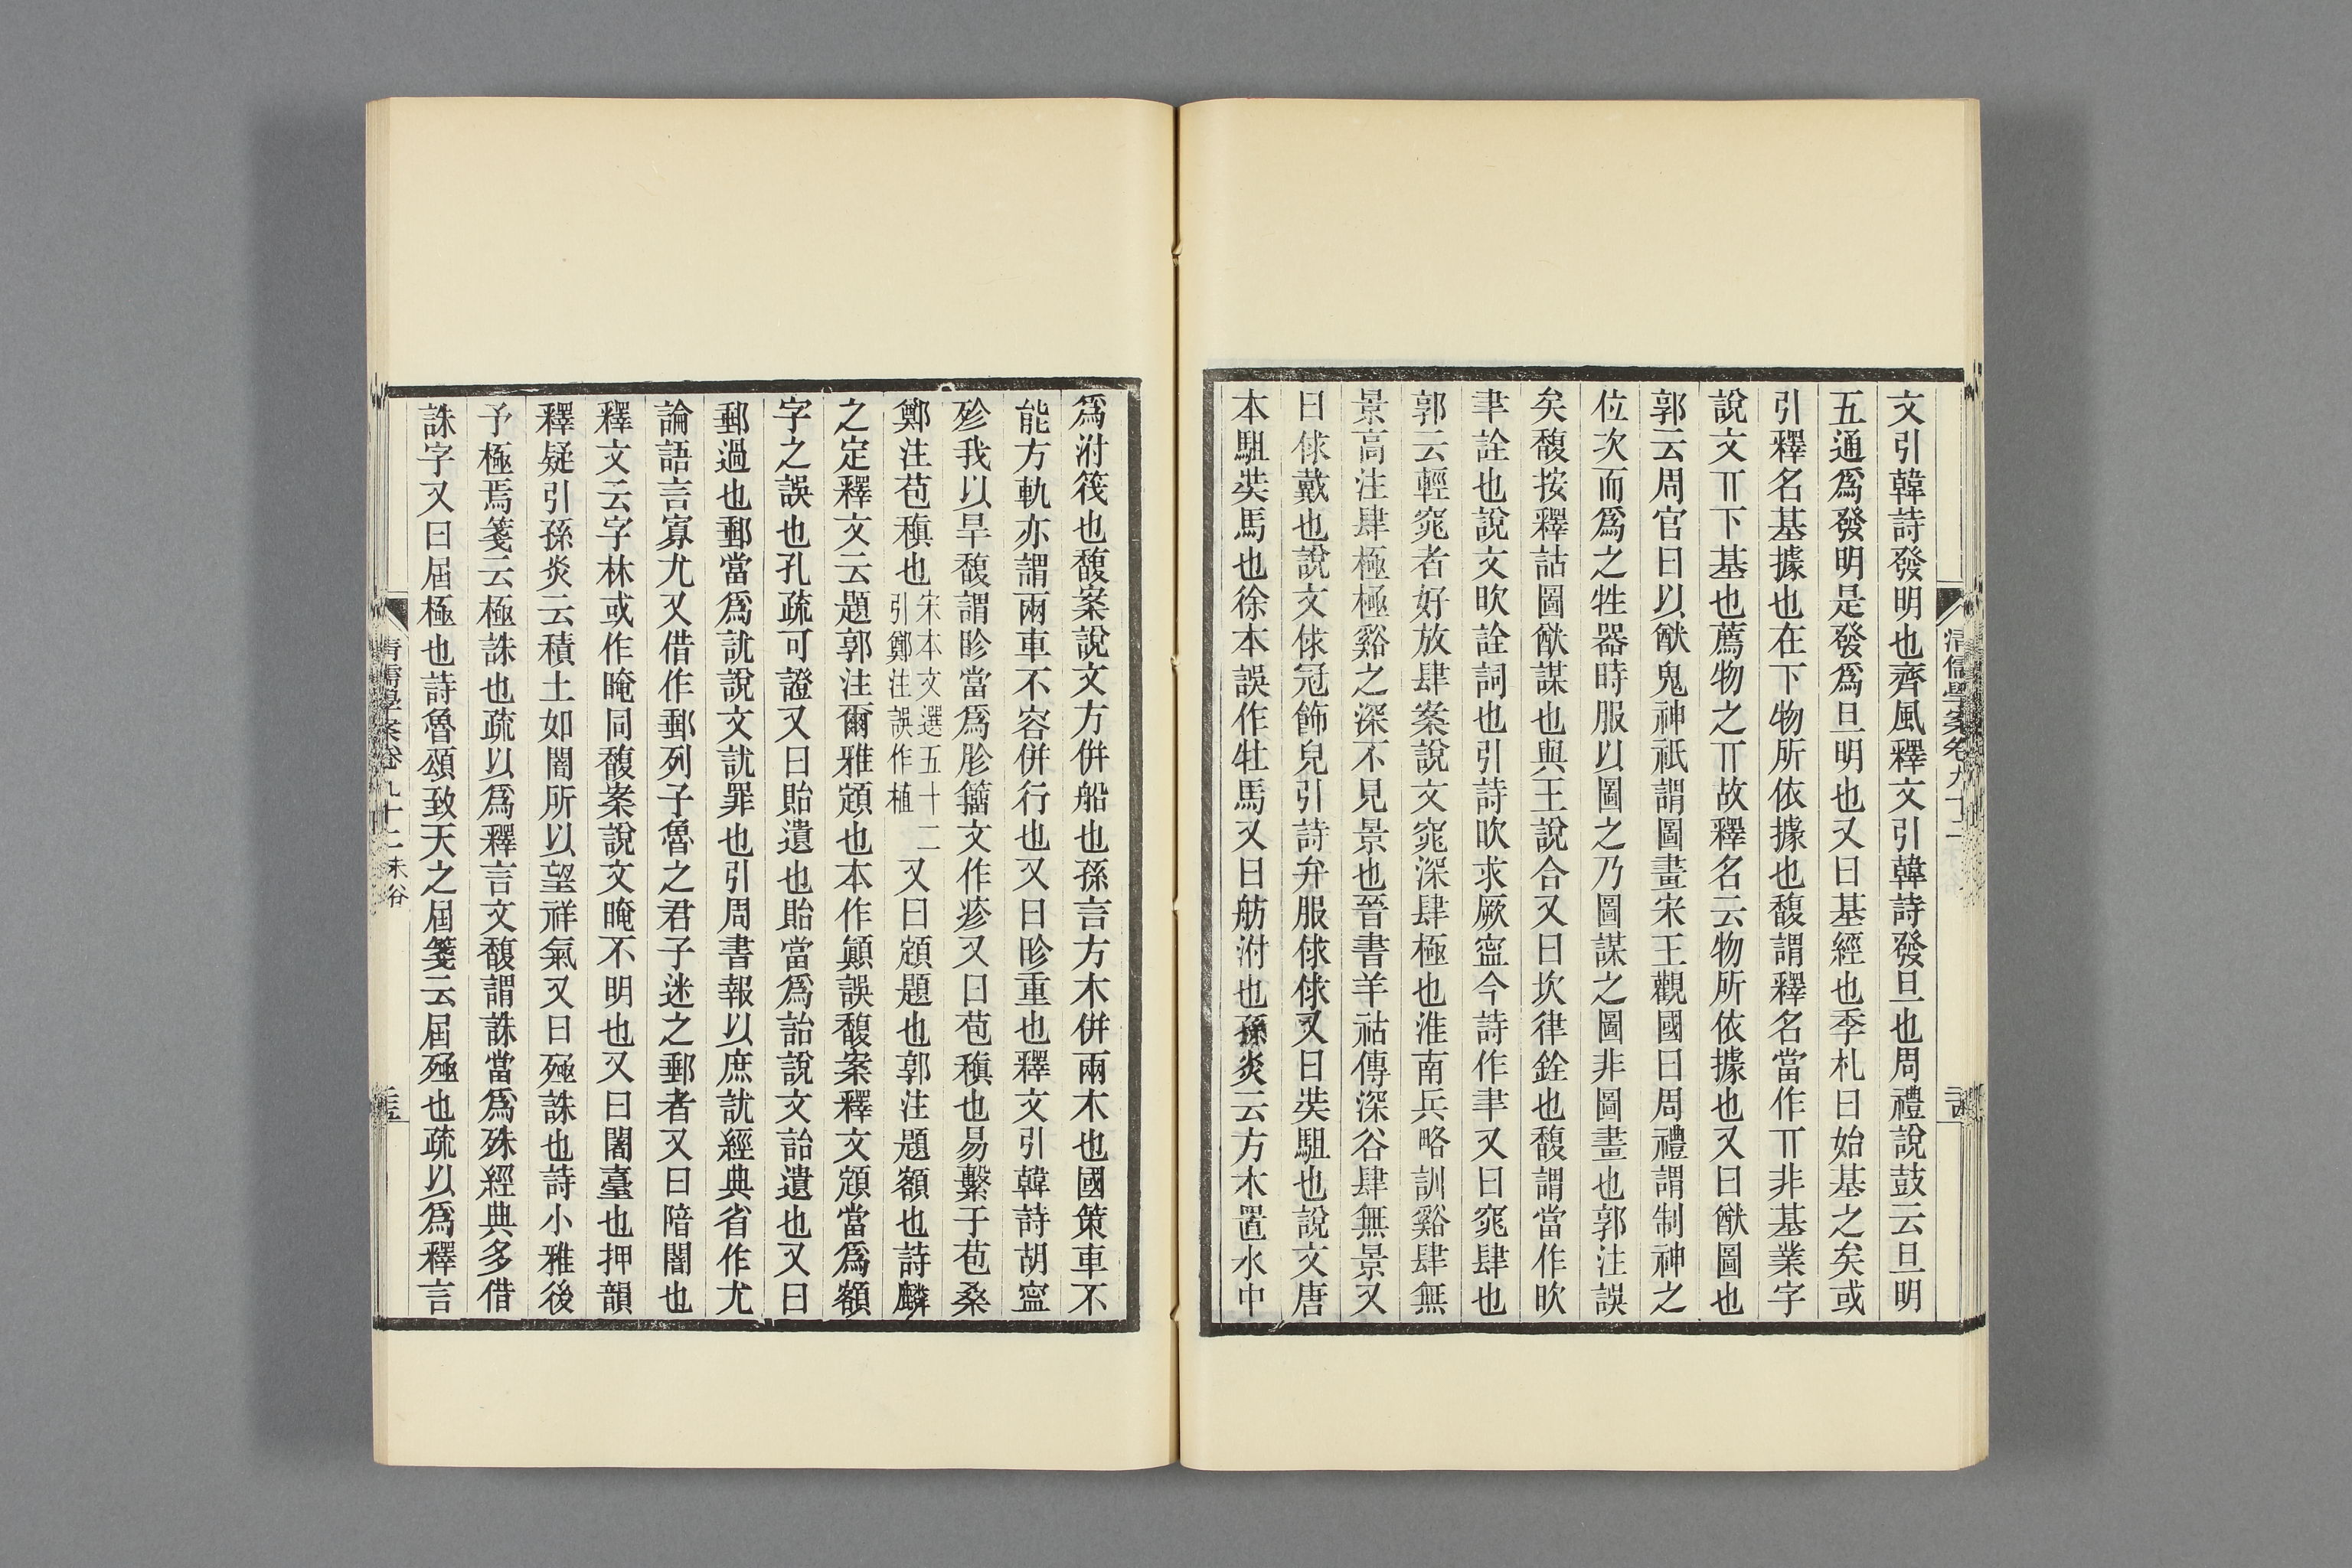 文引韓詩發明也齊風釋文引韓詩發旦也周禮說鼓云旦明
五通爲發明是發爲旦明也又曰基經也季札曰始基之矣或
引釋名基據也在下物所依據也馥謂釋名當作丌非基業字
說文丌下基也薦物之丌故釋名云物所依據也又曰猷圖也
郭云周官曰以猷鬼神祇謂圖畫宋王觀國曰周禮謂制神之
位次而爲之牲器時服以圖之乃圖謀之圖非圖畫也郭注誤
矣馥按釋詁圖猷謀也與王說合又曰坎律銓也馥謂當作欥
聿詮也說文欥詮詞也引詩欥求厥寍今詩作聿又曰窕肆也
郭云輕窕者好放肆案說文窕深肆極也淮南兵略訓谿肆無
景高注肆極極谿之深不見景也晉書羊祜傳深谷肆無景又
曰俅戴也說文俅冠飾皃引詩弁服俅俅又曰奘駔也說文唐
本駔奘馬也徐本誤作牡馬又曰舫泭也孫炎云方木置水中
清儒學案卷九十二
爲泭筏也馥案說文方併船也孫言方木併兩木也國策車不
能方軌亦謂兩車不容併行也又曰眕重也釋文引韓詩胡寍
殄我以旱馥謂眕當爲胗籀文作疹又曰苞稹也易繫于苞桑
鄭注苞稹也宋本文選五十二引鄭注誤作植又曰顁題也郭注題額也詩麟
之定釋文云題郭注爾雅顁也本作顛誤馥案釋文顁當爲額
字之誤也孔疏可證又曰貽遺也貽當爲詒說文詒遺也又曰
郵過也郵當爲訧說文訧罪也引周書報以庶訧經典省作尤
論語言寡尤又借作郵列子魯之君子迷之郵者又曰陪闇也
釋文云字林或作晻同馥案說文晻不明也又曰闍臺也押韻
釋疑引孫炎云積土如闍所以望祥氣又曰殛誅也詩小雅後
予極焉箋云極誅也疏以爲釋言文馥謂誅當爲殊經典多借
誅字又曰屆極也詩魯頌致天之屆箋云屆殛也疏以爲釋言
清儒學案卷九十二 未谷